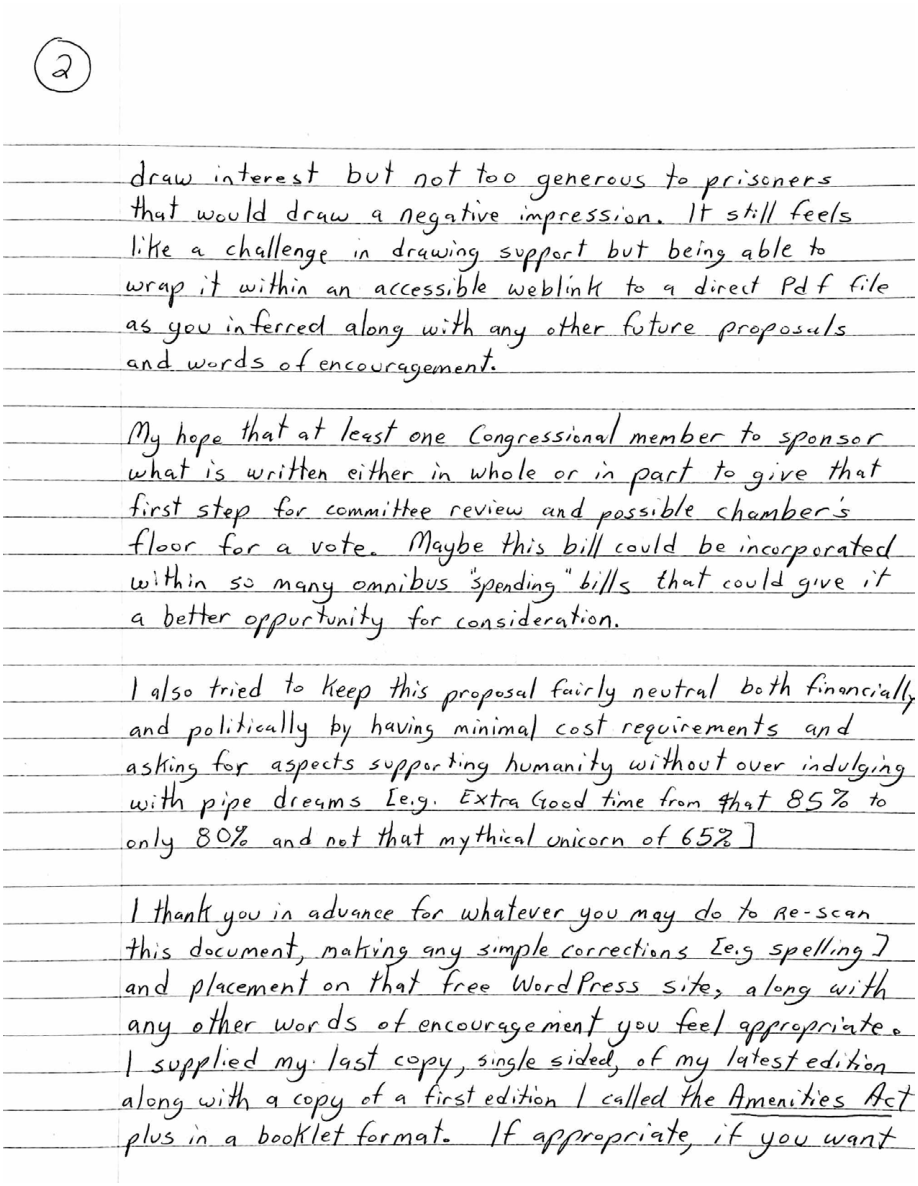 2
draw interest but not too generous to prisoners
that would draw a negative impression. It still feels
like a challenge in drawing support but being able to
wrap it within an accessible weblink to a direct Pdf file
as you inferred along with any other future proposals
and words of encouragement.
My hope that at least one Congressional member to sponsor
what is written either in whole or in part to give that
first step for committee review and possible chamber's
floor for a vote. Maybe this bill could be incorporated
within so many omnibus "spending" bills that could give it
a better oppurtunity for consideration.
I also tried to keep this proposal fairly neutral both financially
and politically by having minimal cost requirements and
asking for aspects supporting humanity without over indulging
with pipe dreams [e.g. Extra Good time from that 85% to
only 80% and not that mythical unicorn of 65%]
I thank you in advance for whatever you may do to Re-scan
this document, making any simple corrections [e.g spelling]
and placement on that free WordPress site, along with
any other words of encouragement you feel appropriate.
I supplied my last copy, single sided, of my latest edition
along with a copy of a first edition I called the Amenities Act
plus in a booklet format. If appropriate, if you want